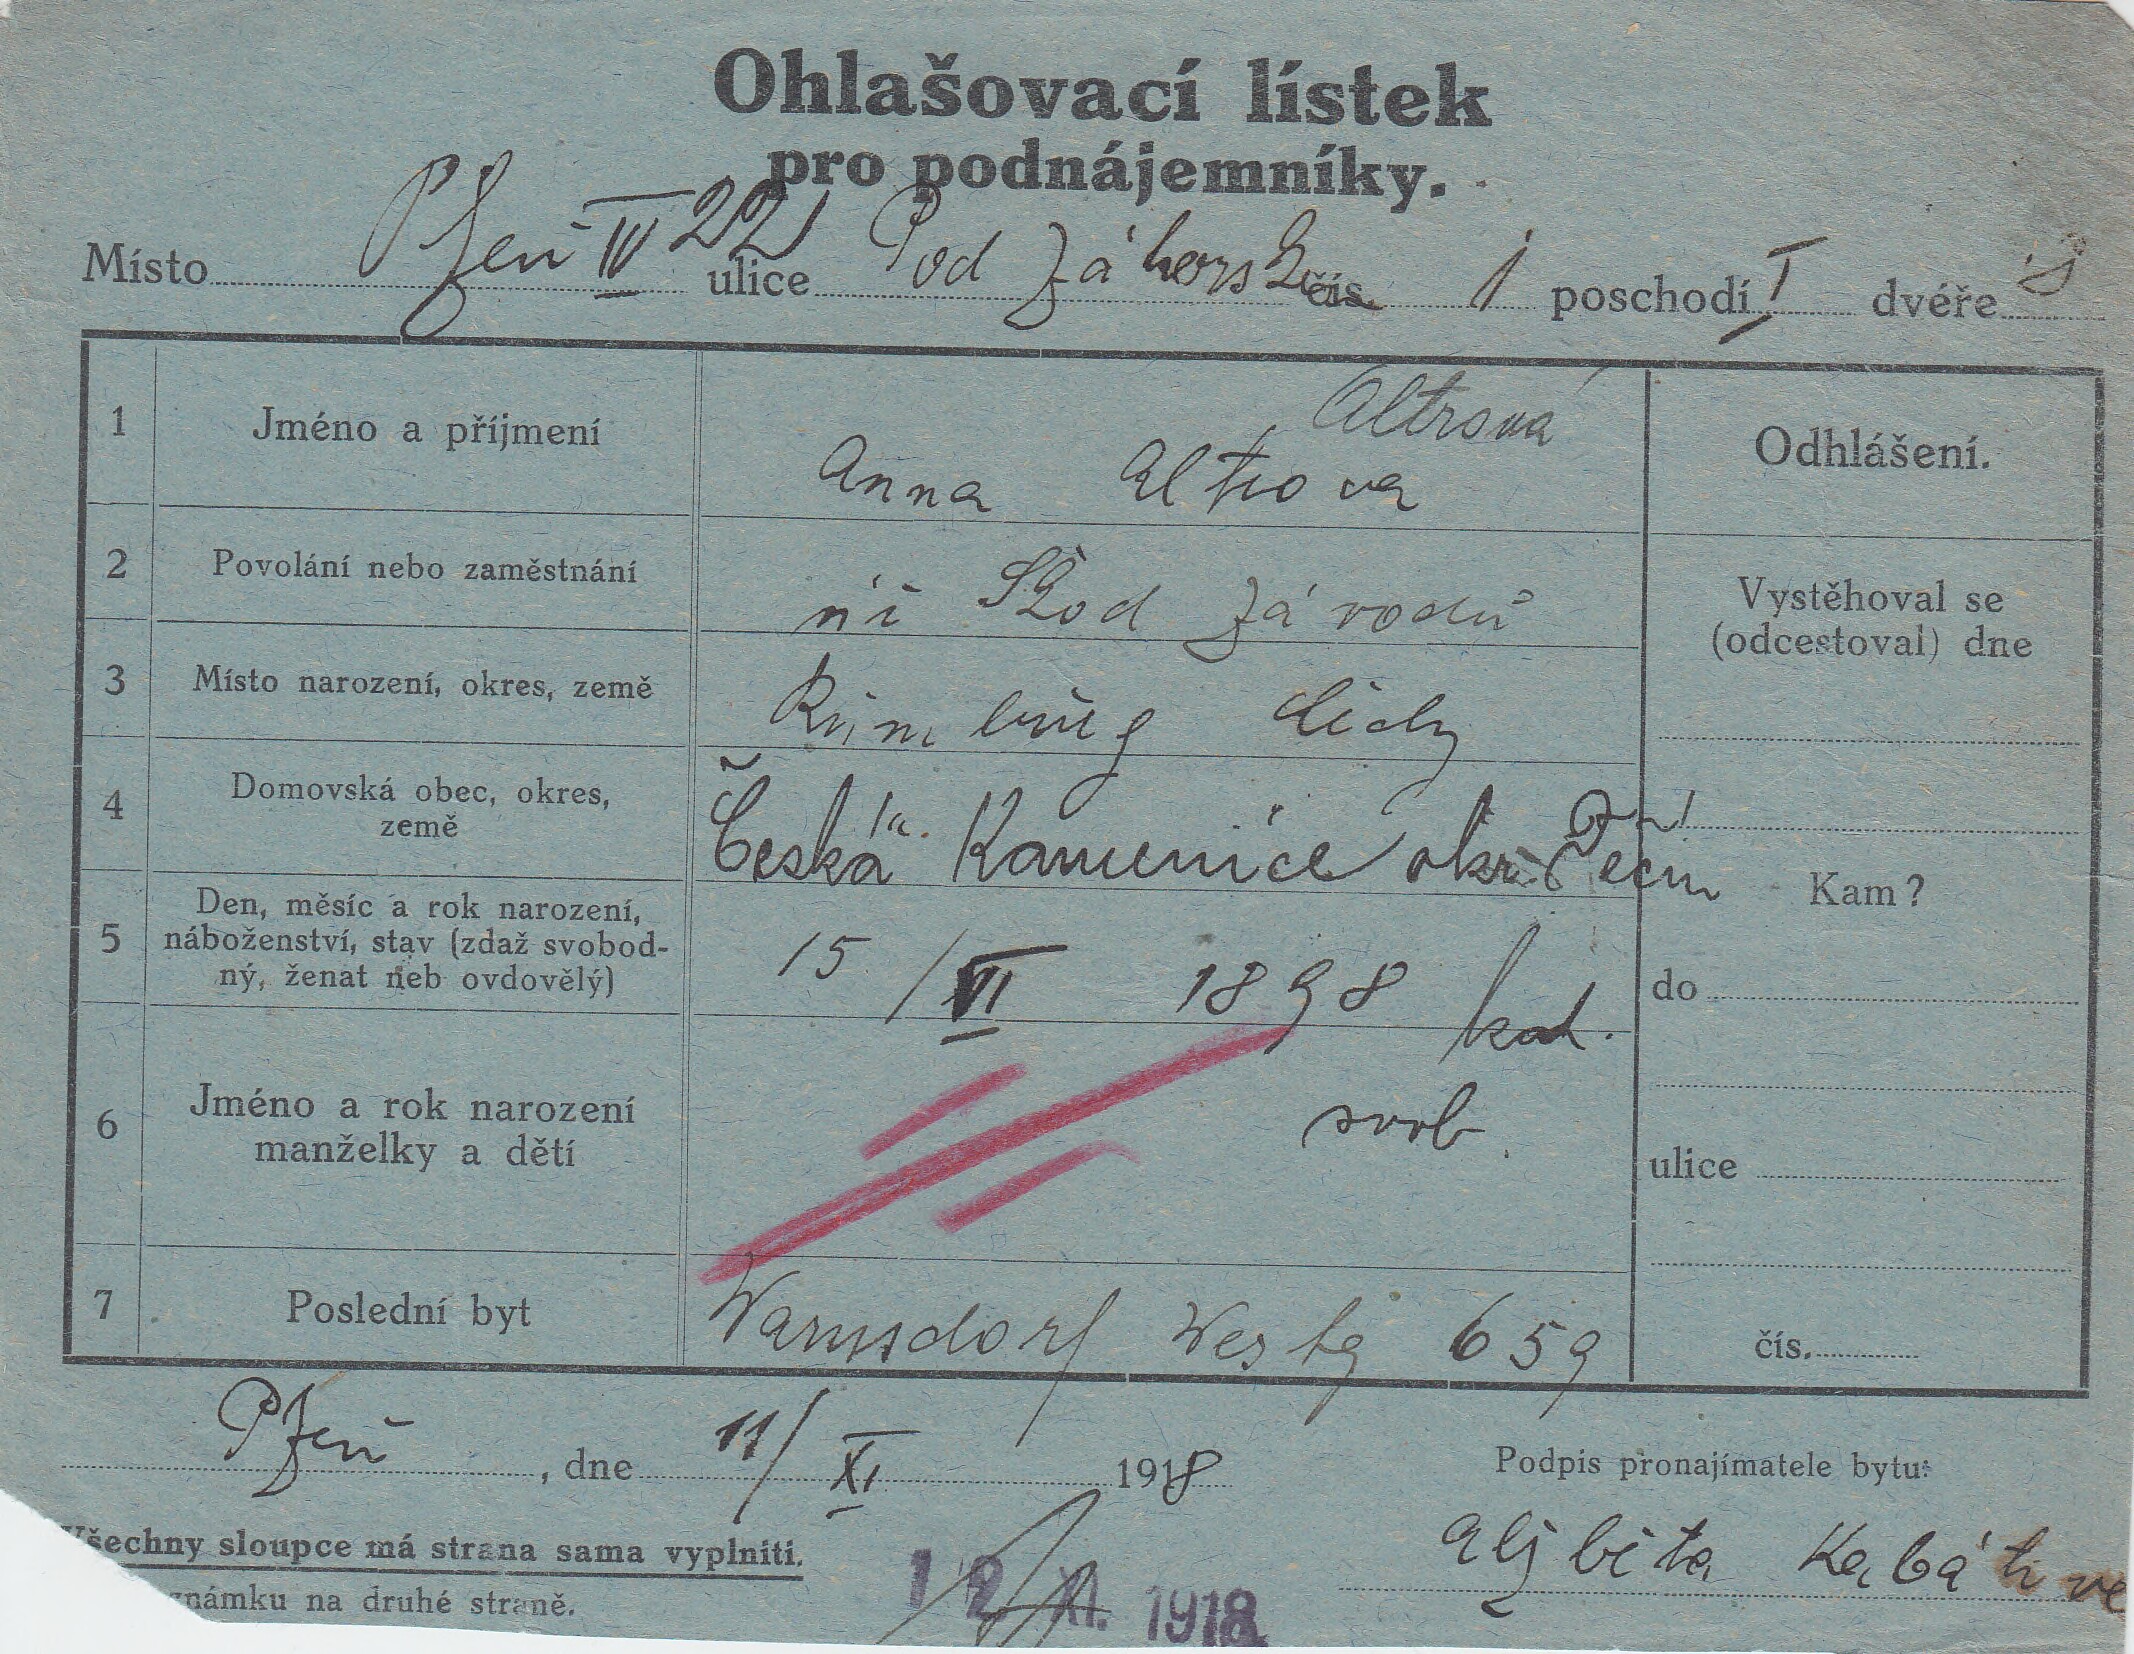 Ohlašovací lístek
pro podnájemníky.
Místo Plzeň IV 221 ulice Pod Záhorsk čís. 1 poschodí I dvéře
1 Jméno a příjmení Anna Altrova Altrová Odhlášení.
2 Povolání nebo zaměstnání Škod závodů
Vystěhoval se
(odcestoval) dne
3 Místo narození, okres, země Rumburg Čechy
4 Domovská obec, okres,
země
Česká Kamenice okr. Děčín
Kam?
5 Den, měsíc a rok narození,
náboženství, stav (zdaž svobod-
ný, ženat neb ovdovělý)
15/VI 1898 kat.
svob.
do
6 Jméno a rok narození
manželky a dětí
ulice
7 Poslední byt Warnsdorf 659
čís.
Plzeň, dne 11/XI 1918 Podpis pronajímatele bytu:
Alžbita
šechny sloupce má strana sama vyplniti.
známku na druhé straně.
12 XI. 1918